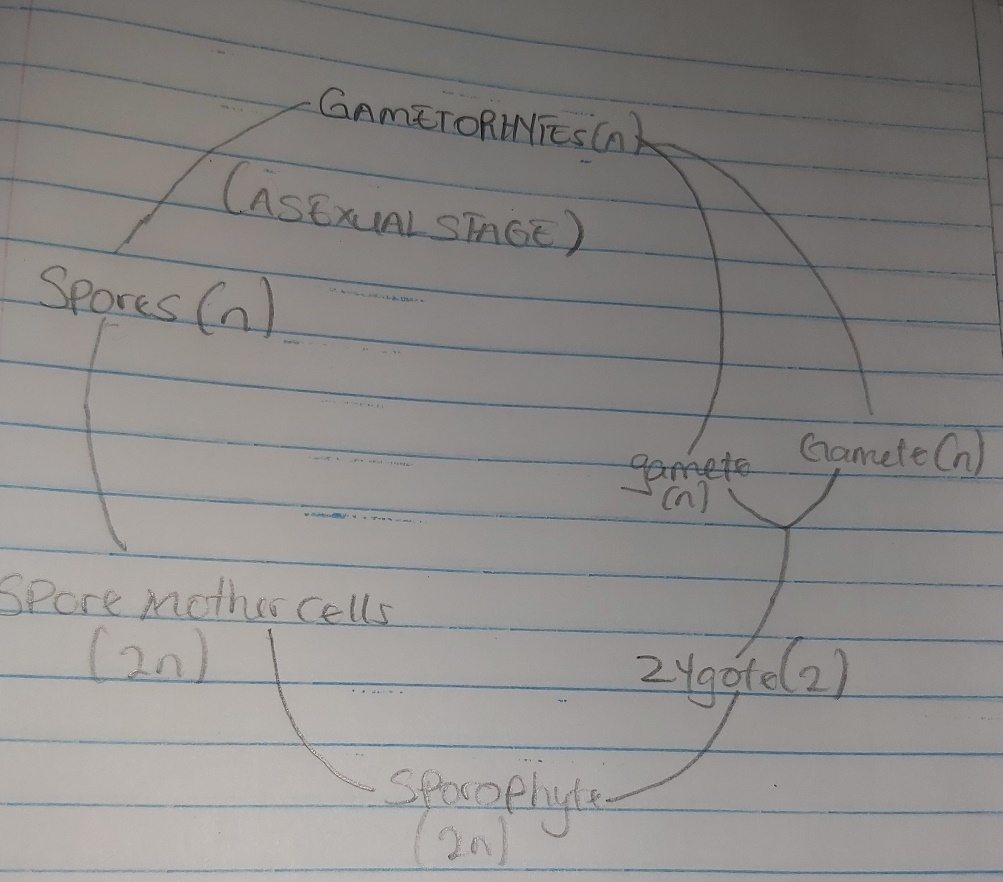 GAMETOPHYTES(n)
(ASEXUAL STAGE)
Spores (n)
gamete
(n)
Gamete(n)
Spore mother cells
(2n)
Zygote(2)
Sporophyte
(2n)